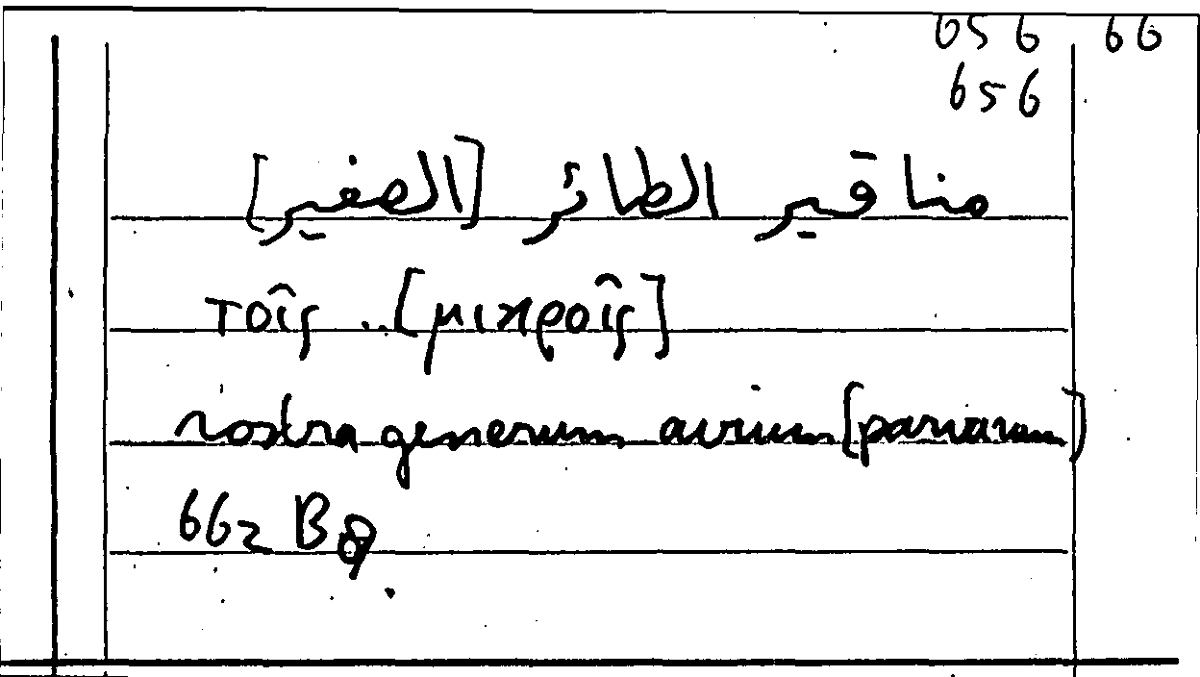 656 66
656
مناقير الطائر [الصغير]
τοῖς .. [μικροῖς]
rostra generum avium [parvarum]
662 B 8